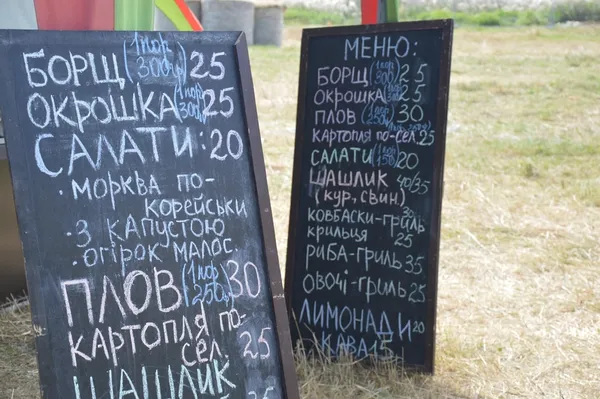 БОРЩ (1пор 300г) 25
ОКРОШКА (1пор 300г) 25
САЛАТИ: 20
· МОРКВА ПО-
КОРЕЙСЬКИ
· З КАПУСТОЮ
· ОГІРОК МАЛОС.
ПЛОВ (1пор 250г) 30
КАРТОПЛЯ ПО-
СЕЛ. 25
ШАШЛИК
МЕНЮ:
БОРЩ (1пор 300г) 25
ОКРОШКА (1пор 300г) 25
ПЛОВ 30
КАРТОПЛЯ ПО-СЕЛ 25
САЛАТИ 20
ШАШЛИК 40/35
(КУР, СВИН)
КОВБАСКИ-ГРИЛЬ 30
КРИЛЬЦЯ 25
РИБА-ГРИЛЬ 35
ОВОЧІ-ГРИЛЬ 25
ЛИМОНАДИ 20
КАВА 15